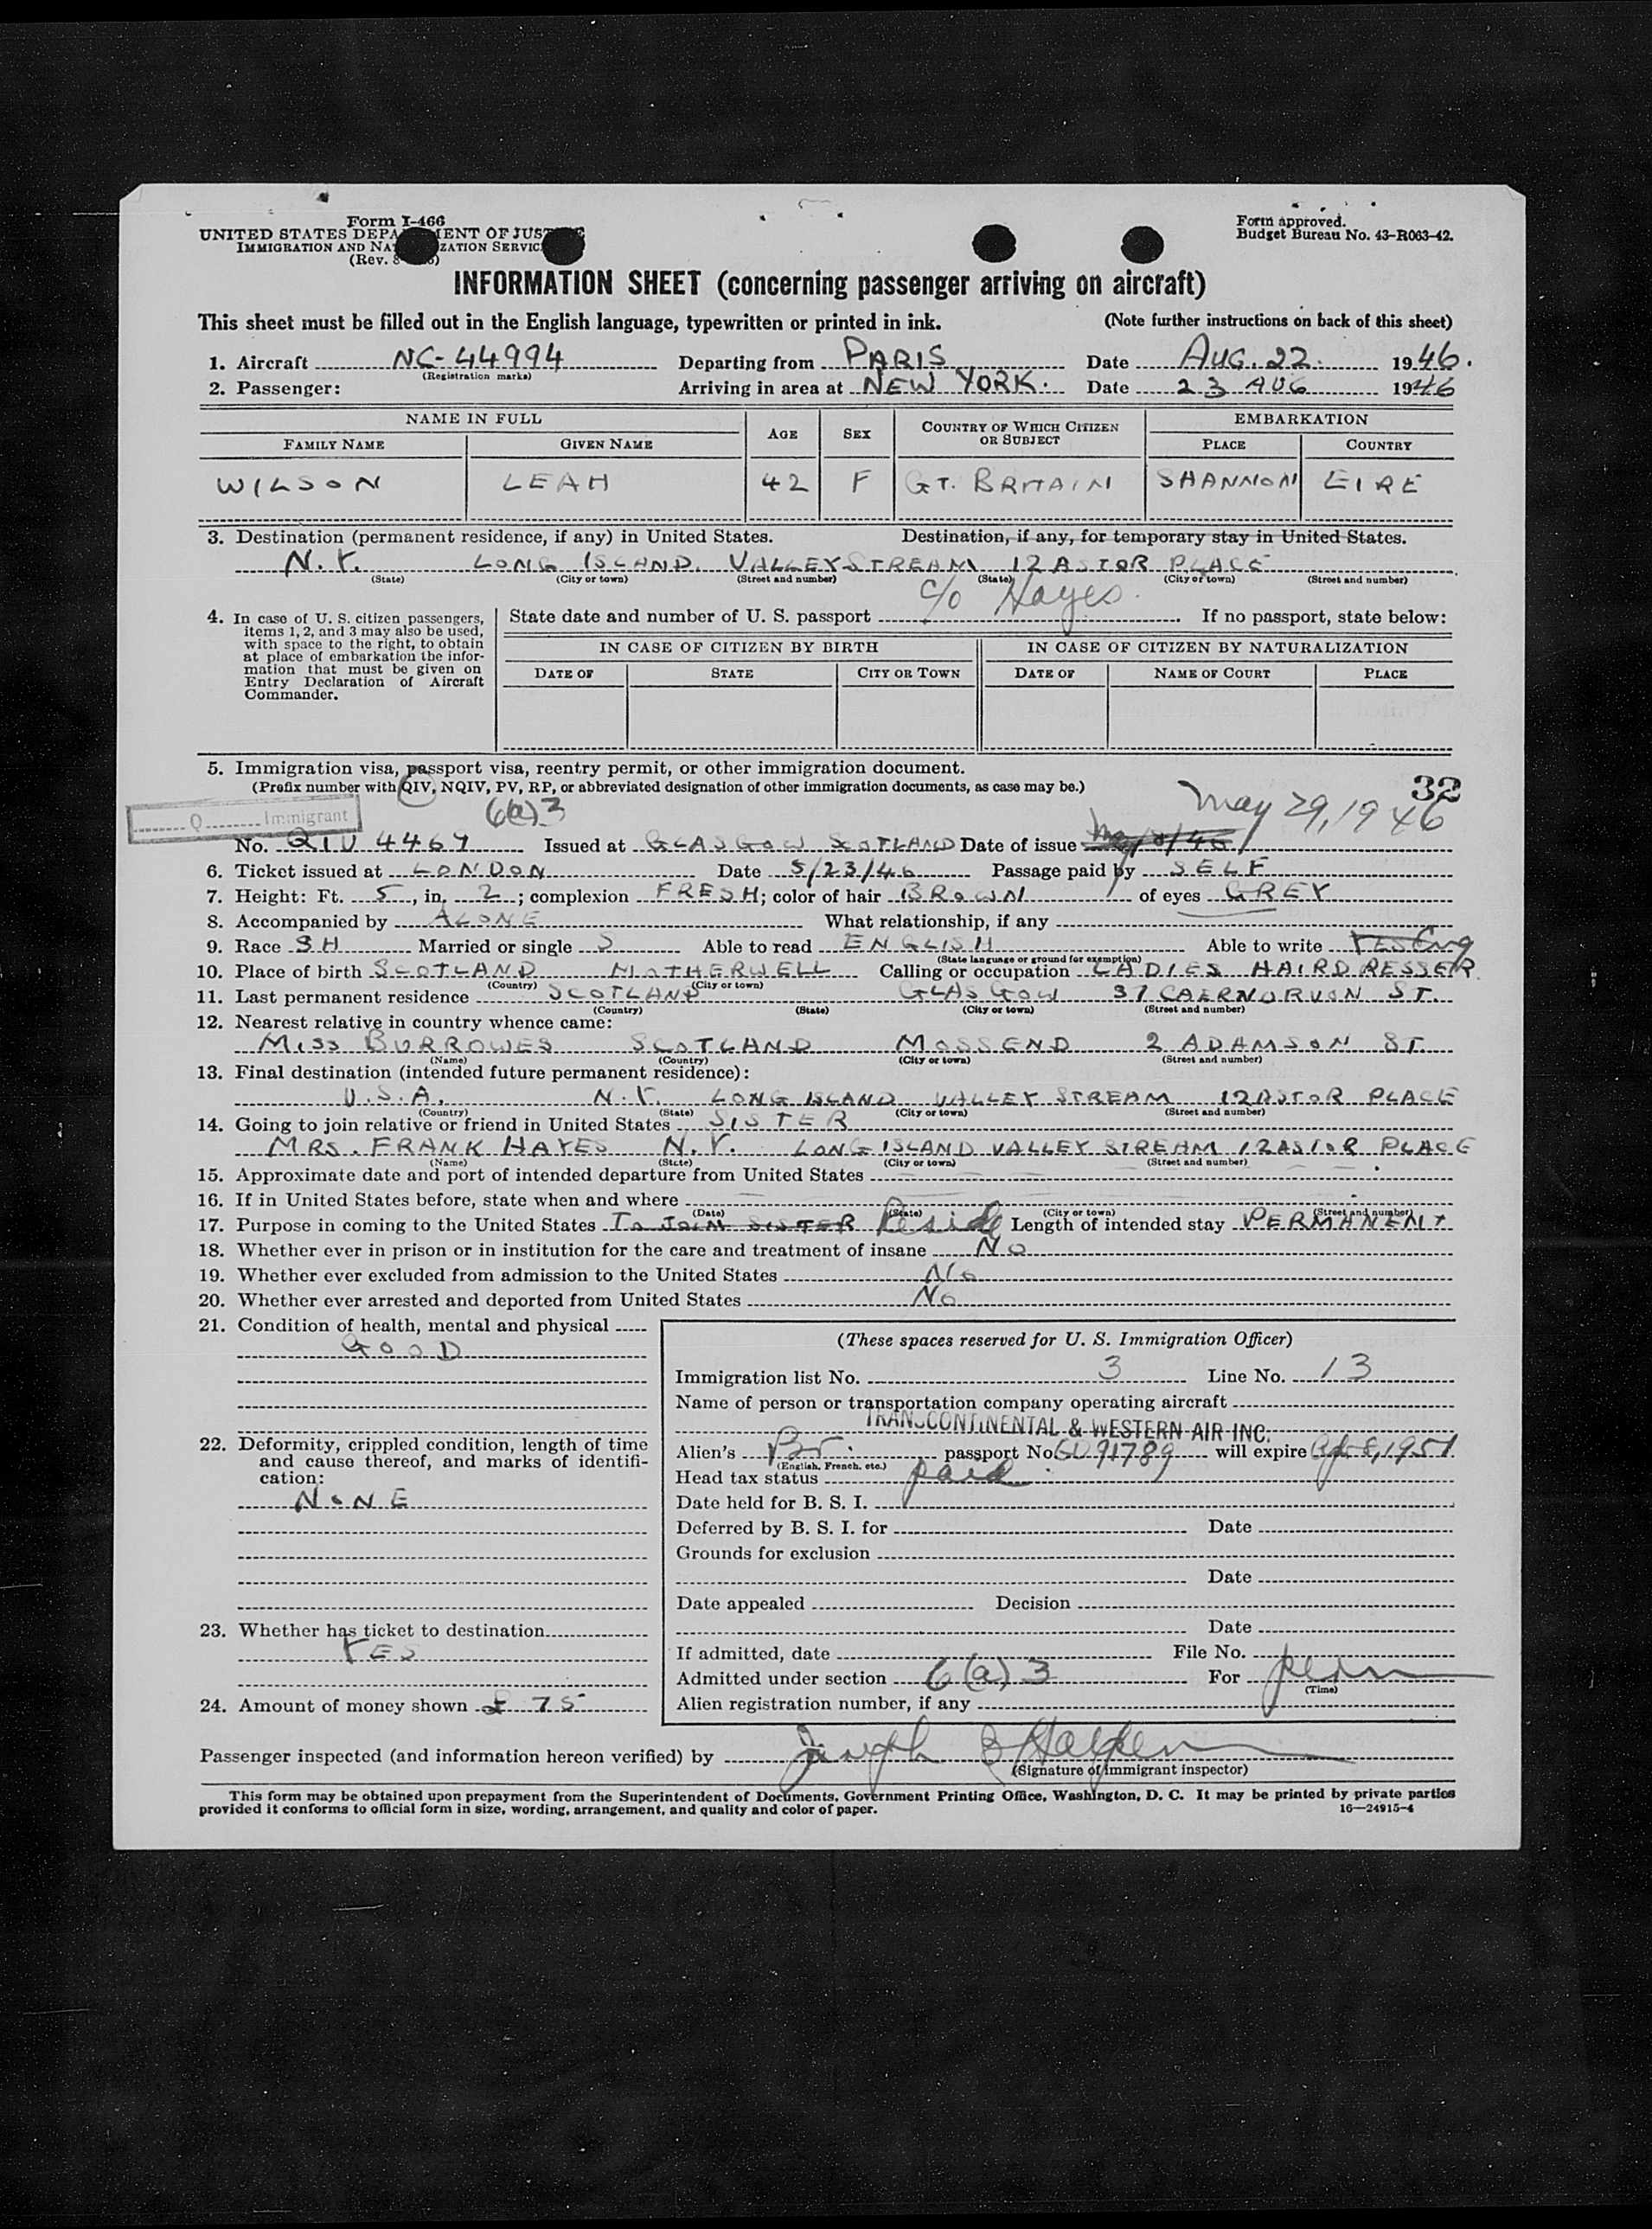 Form I-466
UNITED STATES DEPARTMENT OF JUSTICE
IMMIGRATION AND NATURALIZATION SERVICE
(Rev. 8
Form approved.
Budget Bureau No. 43-R063-42.
INFORMATION SHEET (concerning passenger arriving on aircraft)
This sheet must be filled out in the English language, typewritten or printed in ink. (Note further instructions on back of this sheet)
1. Aircraft NC-44994 Departing from PARIS Date AUG. 22. 1946.
(Registration marks)
2. Passenger: Arriving in area at NEW YORK. Date 23 AUG 1946
NAME IN FULL AGE SEX COUNTRY OF WHICH CITIZEN OR SUBJECT EMBARKATION
FAMILY NAME GIVEN NAME PLACE COUNTRY
WILSON LEAH 42 F GT. BRITAIN SHANNON EIRE
3. Destination (permanent residence, if any) in United States. Destination, if any, for temporary stay in United States.
N.Y. LONG ISLAND. VALLEY STREAM 12 ASTOR PLACE
(State) (City or town) (Street and number) (State) (City or town) (Street and number)
c/o Hayes.
4. In case of U. S. citizen passengers, items 1, 2, and 3 may also be used, with space to the right, to obtain at place of embarkation the information that must be given on Entry Declaration of Aircraft Commander.
State date and number of U. S. passport If no passport, state below:
IN CASE OF CITIZEN BY BIRTH IN CASE OF CITIZEN BY NATURALIZATION
DATE OF STATE CITY OR TOWN DATE OF NAME OF COURT PLACE
5. Immigration visa, passport visa, reentry permit, or other immigration document.
(Prefix number with QIV, NQIV, PV, RP, or abbreviated designation of other immigration documents, as case may be.)
32
6(a)3
May 29, 1946
Q Immigrant
No. QIV 4467 Issued at GLASGOW SCOTLAND Date of issue
6. Ticket issued at LONDON Date 5/23/46 Passage paid by SELF
7. Height: Ft. 5, in. 2; complexion FRESH; color of hair BROWN of eyes GREY
8. Accompanied by ALONE What relationship, if any
9. Race SH Married or single S Able to read ENGLISH Able to write YES Eng
(State language or ground for exemption)
10. Place of birth SCOTLAND MOTHERWELL Calling or occupation LADIES HAIRDRESSER
(Country) (City or town)
11. Last permanent residence SCOTLAND GLASGOW 37 CAERNORVON ST.
(Country) (State) (City or town) (Street and number)
12. Nearest relative in country whence came:
MISS BURROWES SCOTLAND MOSSEND 2 ADAMSON ST.
(Name) (Country) (City or town) (Street and number)
13. Final destination (intended future permanent residence):
U.S.A. N.Y. LONG ISLAND VALLEY STREAM 12 ASTOR PLACE
(Country) (State) (City or town) (Street and number)
14. Going to join relative or friend in United States SISTER
MRS. FRANK HAYES N.Y. LONG ISLAND VALLEY STREAM 12 ASTOR PLACE
(Name) (State) (City or town) (Street and number)
15. Approximate date and port of intended departure from United States
16. If in United States before, state when and where
(Date) (State) (City or town) (Street and number)
17. Purpose in coming to the United States TO JOIN SISTER Reside Length of intended stay PERMANENT
18. Whether ever in prison or in institution for the care and treatment of insane NO
19. Whether ever excluded from admission to the United States NO
20. Whether ever arrested and deported from United States NO
21. Condition of health, mental and physical
GOOD
22. Deformity, crippled condition, length of time and cause thereof, and marks of identification:
NONE
23. Whether has ticket to destination
YES
24. Amount of money shown £ 75
(These spaces reserved for U. S. Immigration Officer)
Immigration list No. 3 Line No. 13
Name of person or transportation company operating aircraft
TRANSCONTINENTAL & WESTERN AIR INC.
Alien's Br. passport No will expire 1951
(English, French, etc.)
Head tax status paid
Date held for B. S. I.
Deferred by B. S. I. for Date
Grounds for exclusion
Date
Date appealed Decision
Date
If admitted, date File No.
Admitted under section 6(a)3 For perm
(Time)
Alien registration number, if any
Passenger inspected (and information hereon verified) by Joseph
(Signature of immigrant inspector)
This form may be obtained upon prepayment from the Superintendent of Documents, Government Printing Office, Washington, D. C. It may be printed by private parties
provided it conforms to official form in size, wording, arrangement, and quality and color of paper. 16—24915-4